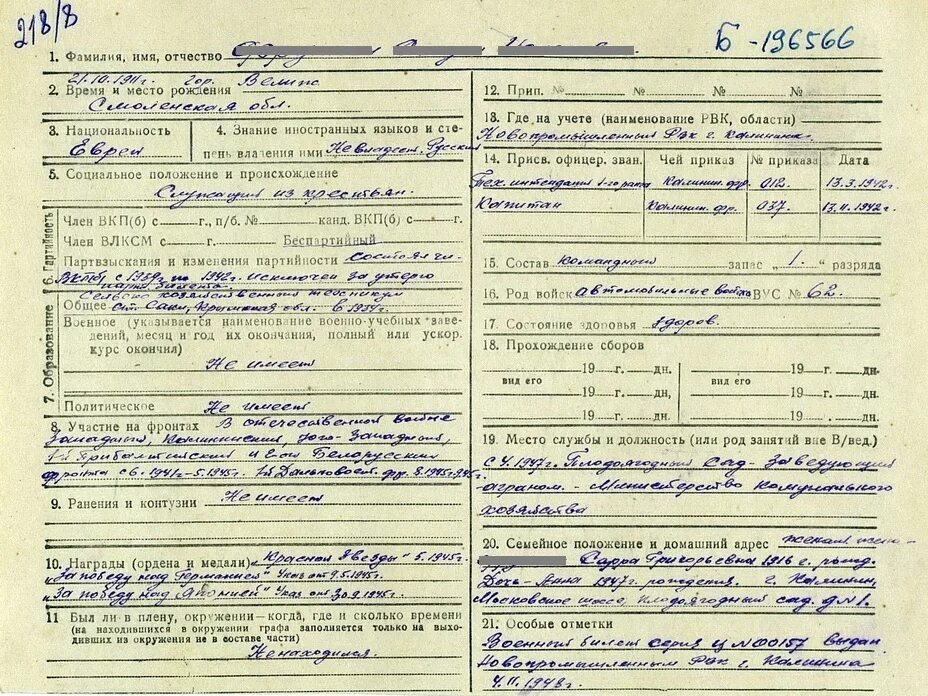 218/8
Б -196566
1. Фамилия, имя, отчество
21.10.1911г. гор. Велиж
2. Время и место рождения
Смоленская обл.
3. Национальность
Еврей
4. Знание иностранных языков и сте-
пень владения ими Не владеет. Русский
5. Социальное положение и происхождение
Служащий из крестьян.
6. Партийность
Член ВКП(б) с г., п/б. № канд. ВКП(б) с г.
Член ВЛКСМ с г. Беспартийный
Партвзыскания и изменения партийности Состоял чл.
ВКП(б) с 1939г. по 1942. исключен за утерю
парт. билета.
7. Образование
Сельско хозяйственный техникум
Общее ст. Саки, Крымской обл. в 1934г.
Военное (указывается наименование военно-учебных заве-
дений, месяц и год их окончания, полный или ускор.
курс окончил)
Не имеет
Политическое Не имеет
8. Участие на фронтах В отечественной войне
Западный, Калининский, Юго-Западный,
1й Прибалтийский и 2ой Белорусский
фронта с 6.1941г-5.1945г. 1й Дальневост. фр. 8.1945г.
9. Ранения и контузии Не имеет
10. Награды (ордена и медали) „Красная Звезда" 5.1945г.
„За победу над Германией" Указ от 9.5.1945г.
„За победу над Японией" Указ от 30.9.1945г.
11 Был ли в плену, окружении—когда, где и сколько времени
(на находившихся в окружении графа заполняется только на выхо-
дивших из окружения не в составе части)
Не находился.
12. Прип. № № № №
13. Где на учете (наименование РВК, области)
Новопромышленный РВК г. Калинин.
14. Присв. офицер. зван. Чей приказ № приказа Дата
Тех. интендант 1-го ранга Калинин. фр. 012. 13.3.1942г.
Капитан Калинин. фр. 037. 13.11.1942г.
15. Состав командного запас „1." разряда
16. Род войск автомобильные войска ВУС № 62.
17. Состояние здоровья Здоров.
18. Прохождение сборов
19 г. дн. 19 г. дн.
вид его вид его
19 г. дн. 19 г. дн.
19 г. дн. 19 г. дн.
19. Место службы и должность (или род занятий вне В/вед.)
с 4.1947г. Плодоягодный сад- заведующий
-аграном. - Министерство комунального
хозяйства
20. Семейное положение и домашний адрес женат жена-
Сарра Григорьевна 1916 г. рожд.
Дочь- Анна 1947г. рождения. г. Калинин,
Московское шоссе, плодоягодный сад. д №1.
21. Особые отметки
Военный билет серия Ц № 00157 выдан
Новопромышленным РВК г. Калинина
4.11.1948г.